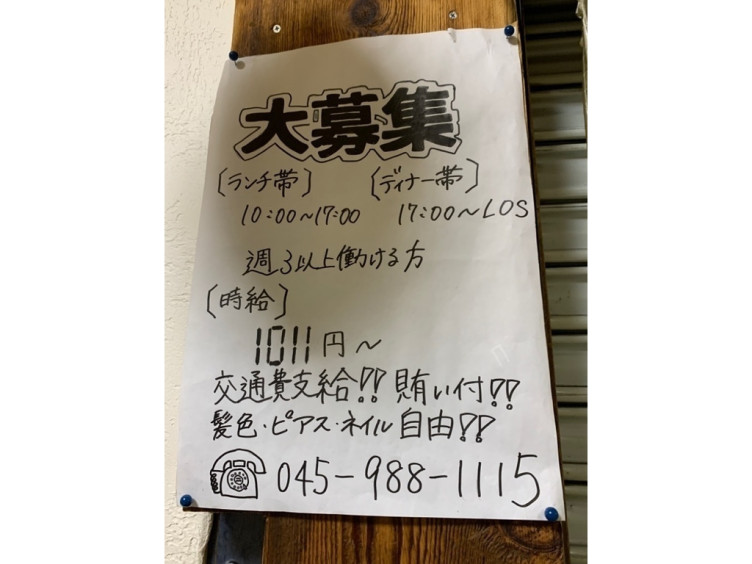 大募集
〔ランチ帯〕 〔ディナー帯〕
10:00～17:00 17:00～LOS
週3以上働ける方
〔時給〕
1011円～
交通費支給!! 賄い付!!
髪色・ピアス・ネイル自由!!
045-988-1115